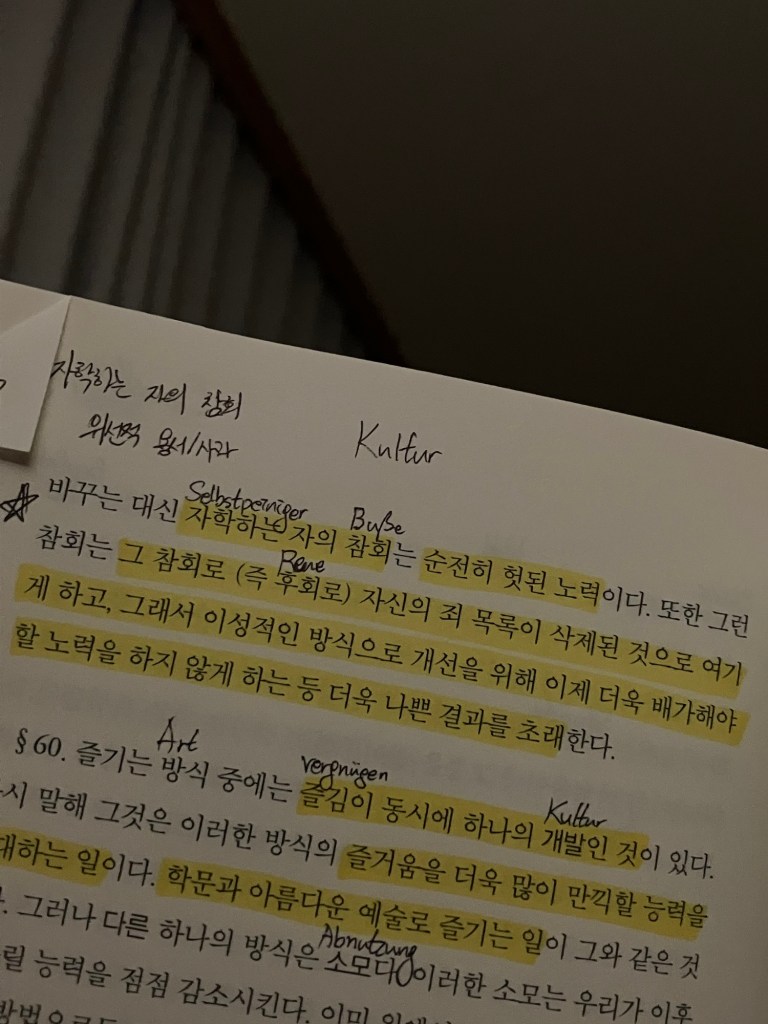 자학하는 자의 참회
위선적 용서/사과
Kultur
Selbstpeiniger Buße
바꾸는 대신 자학하는 자의 참회는 순전히 헛된 노력이다. 또한 그런
Reue
참회는 그 참회로 (즉 후회로) 자신의 죄 목록이 삭제된 것으로 여기
게 하고, 그래서 이성적인 방식으로 개선을 위해 이제 더욱 배가해야
할 노력을 하지 않게 하는 등 더욱 나쁜 결과를 초래한다.
Art vergnügen Kultur
§ 60. 즐기는 방식 중에는 즐김이 동시에 하나의 개발인 것이 있다.
시 말해 그것은 이러한 방식의 즐거움을 더욱 많이 만끽할 능력을
대하는 일이다. 학문과 아름다운 예술로 즐기는 일이 그와 같은 것
Abnutzung
. 그러나 다른 하나의 방식은 소모다. 이러한 소모는 우리가 이후
릴 능력을 점점 감소시킨다. 이미